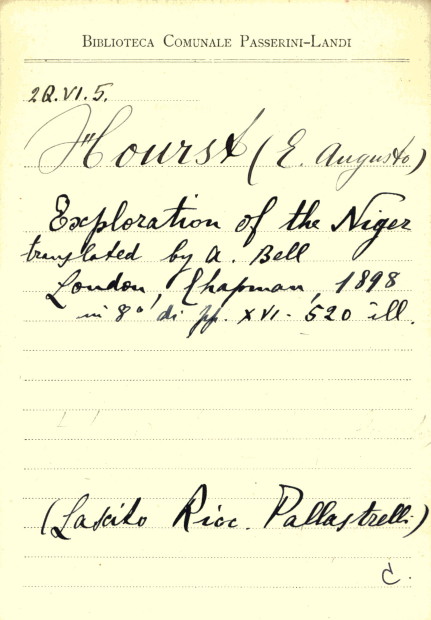 BIBLIOTECA COMUNALE PASSERINI-LANDI
2Q.VI.5.
Hourst (E. Augusto)
Exploration of the Niger
translated by A. Bell
London, Chapman, 1898
in 8° di pp. XVI-520 ill.
(Lascito Rioc. Pallastrelli)
C.